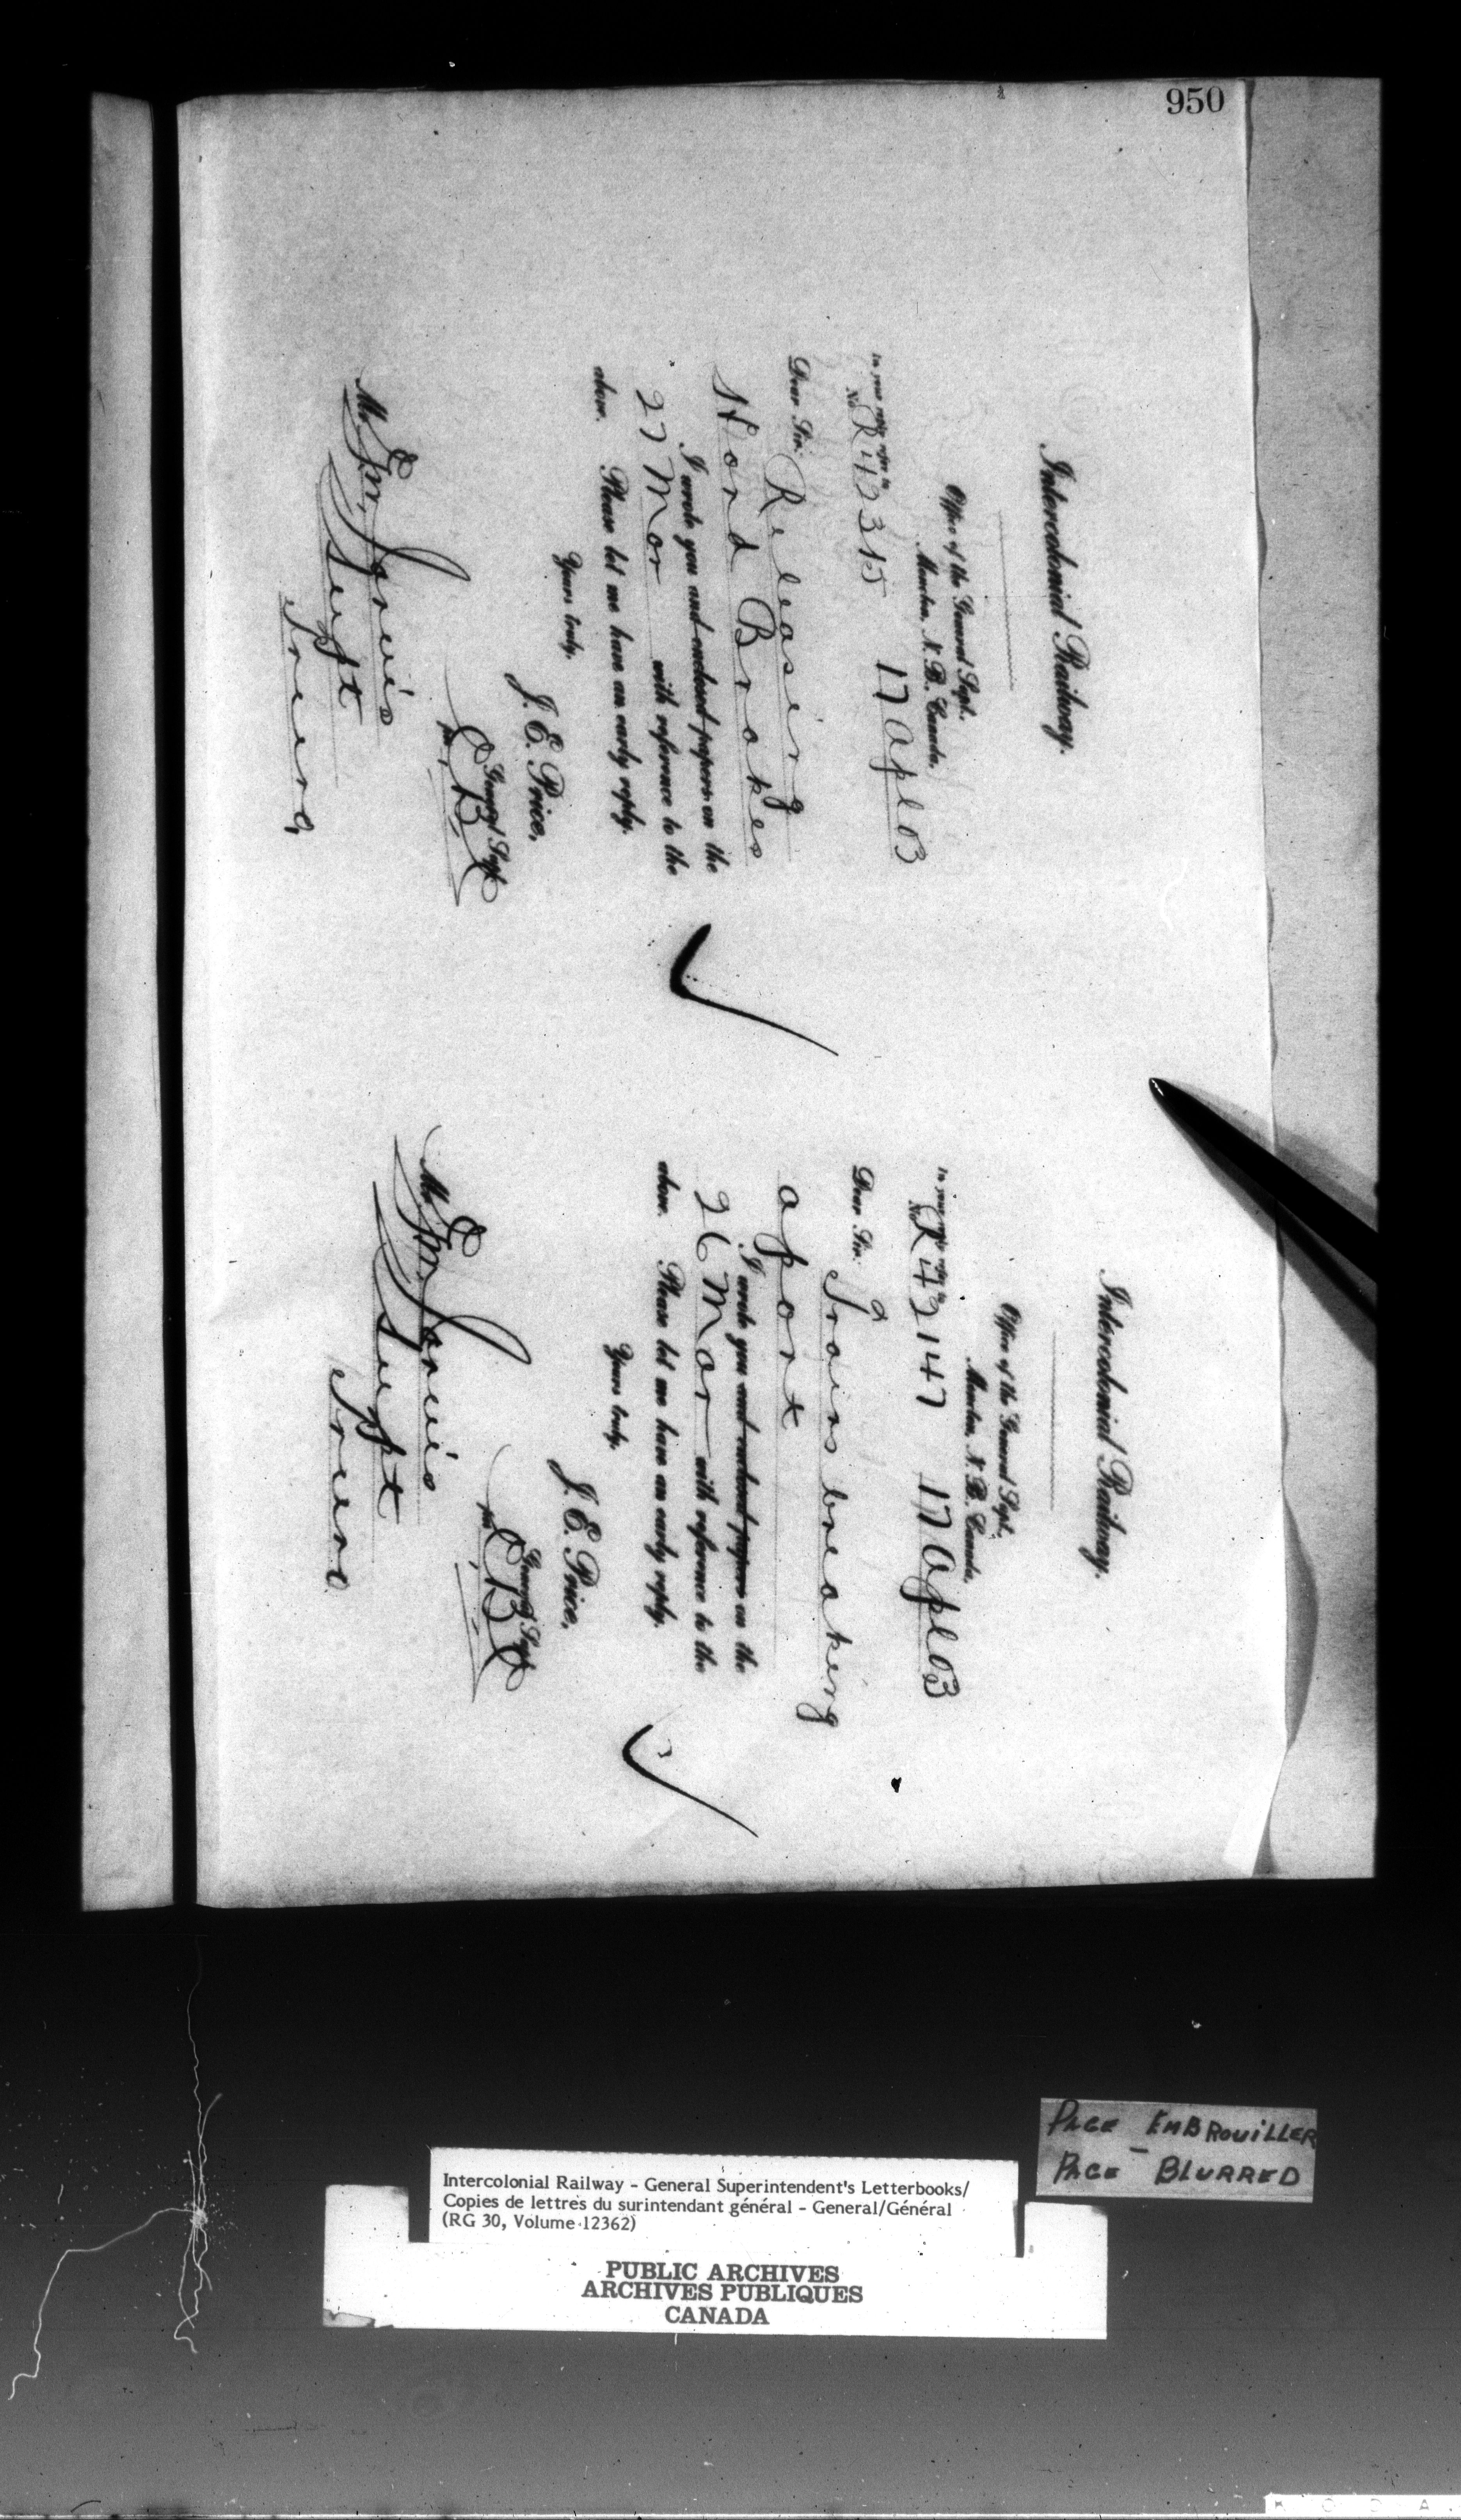 950
Intercolonial Railway.
Office of the General Supt.
Moncton, N. B. Canada.
In your reply refer to
No R 42315 17 Apl 03
Dear Sir: Releasing
Hand Brakes
I wrote you and enclosed papers on the
27 Mar with reference to the
above. Please let me have an early reply.
Yours truly,
J. E. Price,
General Supt
per
Mr. Jarvis
Supt
Truro,
Intercolonial Railway.
Office of the General Supt.
Moncton, N. B. Canada.
In your reply refer to
No R 42147 17 Apl 03
Dear Sir: Trains breaking
apart
I wrote you and enclosed papers on the
26 Mar with reference to the
above. Please let me have an early reply.
Yours truly,
J. E. Price,
General Supt
per
Mr. Jarvis
Supt
Truro
PAGE EMBROUILLER
PAGE - BLURRED
Intercolonial Railway - General Superintendent's Letterbooks/
Copies de lettres du surintendant général - General/Général
(RG 30, Volume 12362)
PUBLIC ARCHIVES
ARCHIVES PUBLIQUES
CANADA